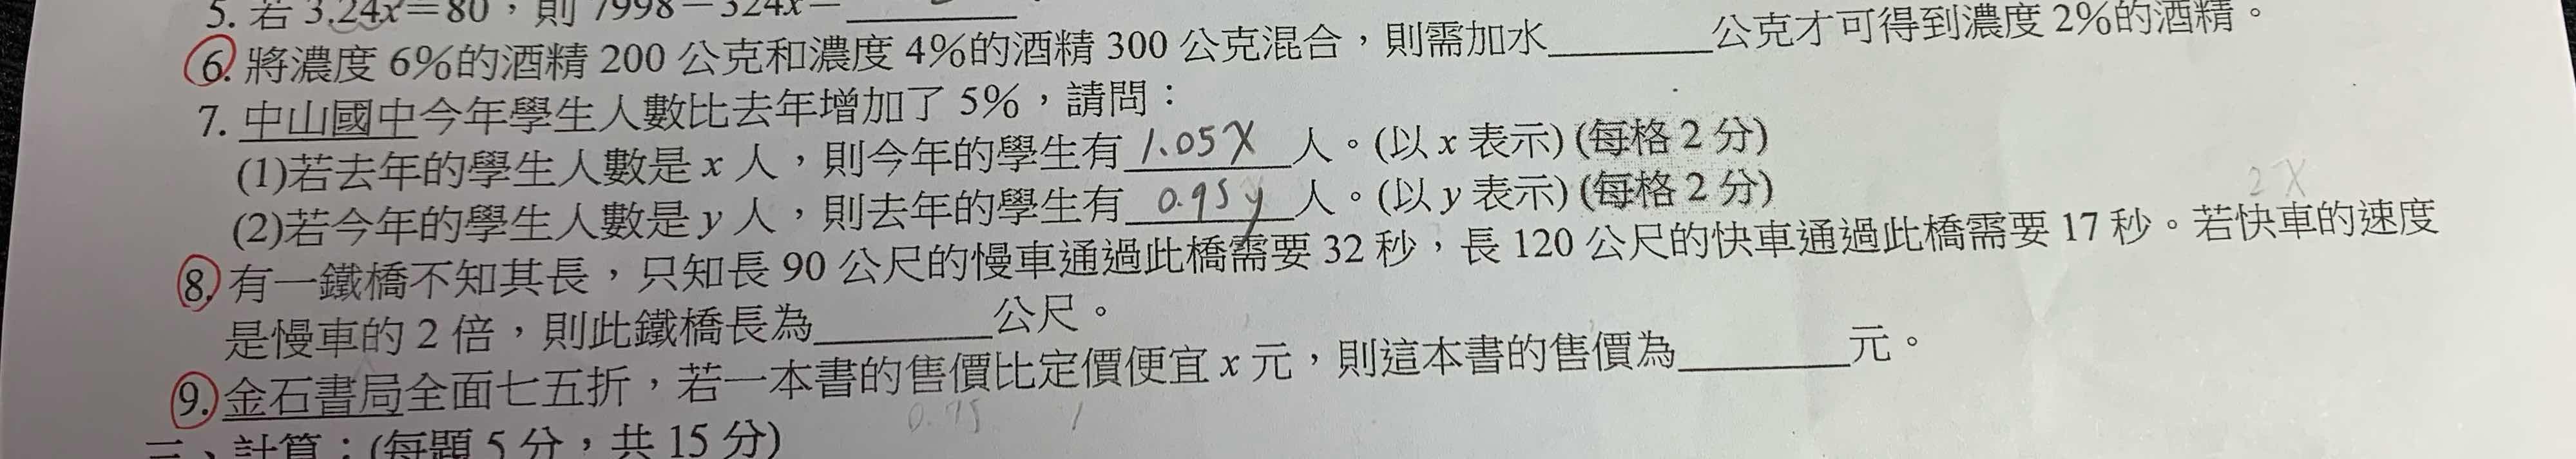 5. 若 3.24x=80，則 7998-324x=________
6. 將濃度 6%的酒精 200 公克和濃度 4%的酒精 300 公克混合，則需加水________公克才可得到濃度 2%的酒精。
7. 中山國中今年學生人數比去年增加了 5%，請問：
(1)若去年的學生人數是 x 人，則今年的學生有 1.05x 人。(以 x 表示) (每格 2 分)
(2)若今年的學生人數是 y 人，則去年的學生有 0.95y 人。(以 y 表示) (每格 2 分)
2x
8. 有一鐵橋不知其長，只知長 90 公尺的慢車通過此橋需要 32 秒，長 120 公尺的快車通過此橋需要 17 秒。若快車的速度
是慢車的 2 倍，則此鐵橋長為________公尺。
9. 金石書局全面七五折，若一本書的售價比定價便宜 x 元，則這本書的售價為________元。
0.75 1
三、計算：(每題 5 分，共 15 分)